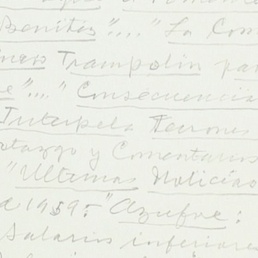 Benitos"...." La Com
Trampolin par
e"...." Consecuencia
Interpela
y Comentarios
"Ultimas Noticias
d 1959:- "Azufre:
Salarios inferiores